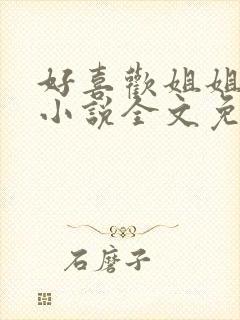 好喜歡姐姐
小說全文免
石磨子